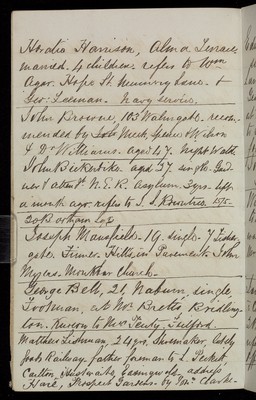 Horatio Harrison, Alma Terrace
married. 4 children. refers to Wm
Agar. Hope St. Henry &
Geo: Leeman. Navy service.
John Browne, 103 Walmgate. recom
mended by Meek, Spence & Wilson
& Dr Williams. Aged 47. Night Watch
John Bickerdike aged 37 single. Gard
ner & attendt N. E. R. Asylum. 3 yrs. left
a month ago refers to J. S. Rowntree 15/-
20 Bootham Sq
Joseph Mansfield. 19. single. 7 Fishers
gate. Pavement. John
Myers. Church.
George Bell, 21, Naburn, single
Footman, at Mr Bretts Bridling-
ton. Known to Mrs Fulford.
Matthew 24 yrs. Shoemaker, lately
for Railway. father foreman to L. Peckett
Carlton, Husthwaite, Easingwold. address
Hare, Prospect Gardens. by Mrs Clarke.